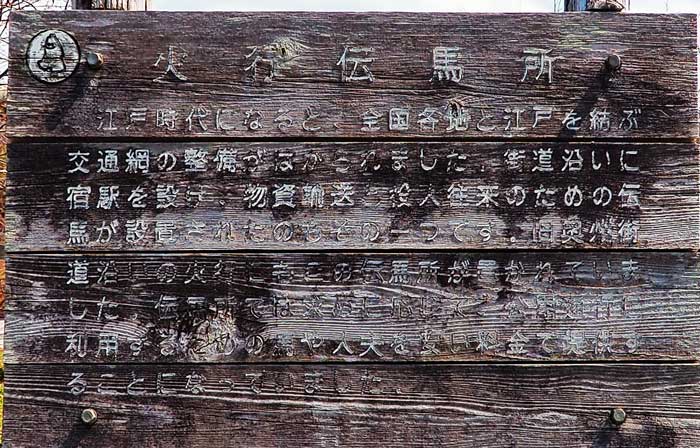 火行伝馬所
江戸時代になると、全国各地と江戸を結ぶ
交通網の整備がはかられました。街道沿いに
宿駅を設け、物資輸送や役人往来のための伝
馬が設置されたのもその一つです。旧奥州街
道沿いの火行にもこの伝馬所が置かれていま
した。伝馬所では
利用するための馬や人夫を安い料金で提供す
ることになっていました。